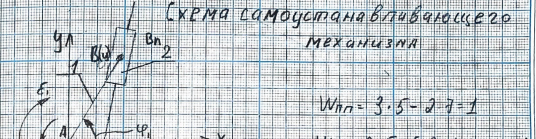 Схема самоустанавливающего
механизма
Wпл = 3·5 - 2·7 = 1
Ул
1
B(u)
Bп
2
ε₁
A
φ₁